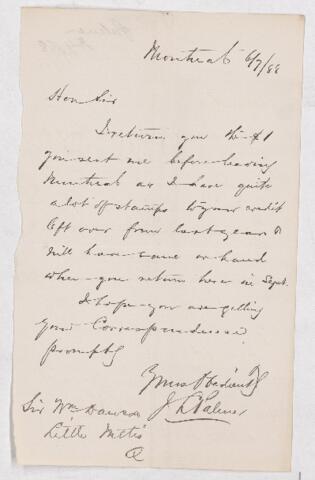 Montreal 6/7/88
Hon Sir
I return you the $1
you sent me before leaving
Montreal as I have quite
a lot of stamps to your credit
left over from last year &
will have same on hand
when you return here in Sept.
I hope you are getting
your Correspondence
promptly
Yours Obediently
J L Palmer
Sir Wm Dawson
Little Metis
Q